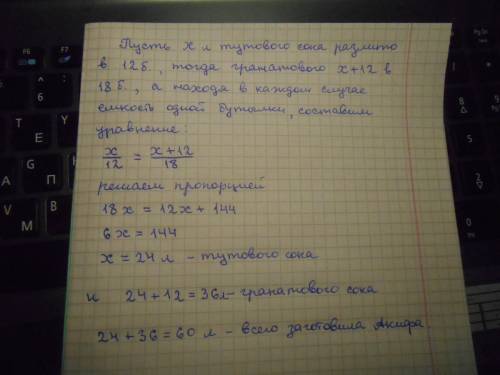 Пусть х л тутового сока разлито
в 12 б., тогда гранатового х+12 в
18 б., а находя в каждом случае
емкость одной бутылки, составим
уравнение:
x/12 = x+12/18
решаем пропорцией
18x = 12x + 144
6x = 144
x = 24 л - тутового сока
и 24 + 12 = 36л - гранатового сока
24 + 36 = 60 л - всего заготовила Акифа